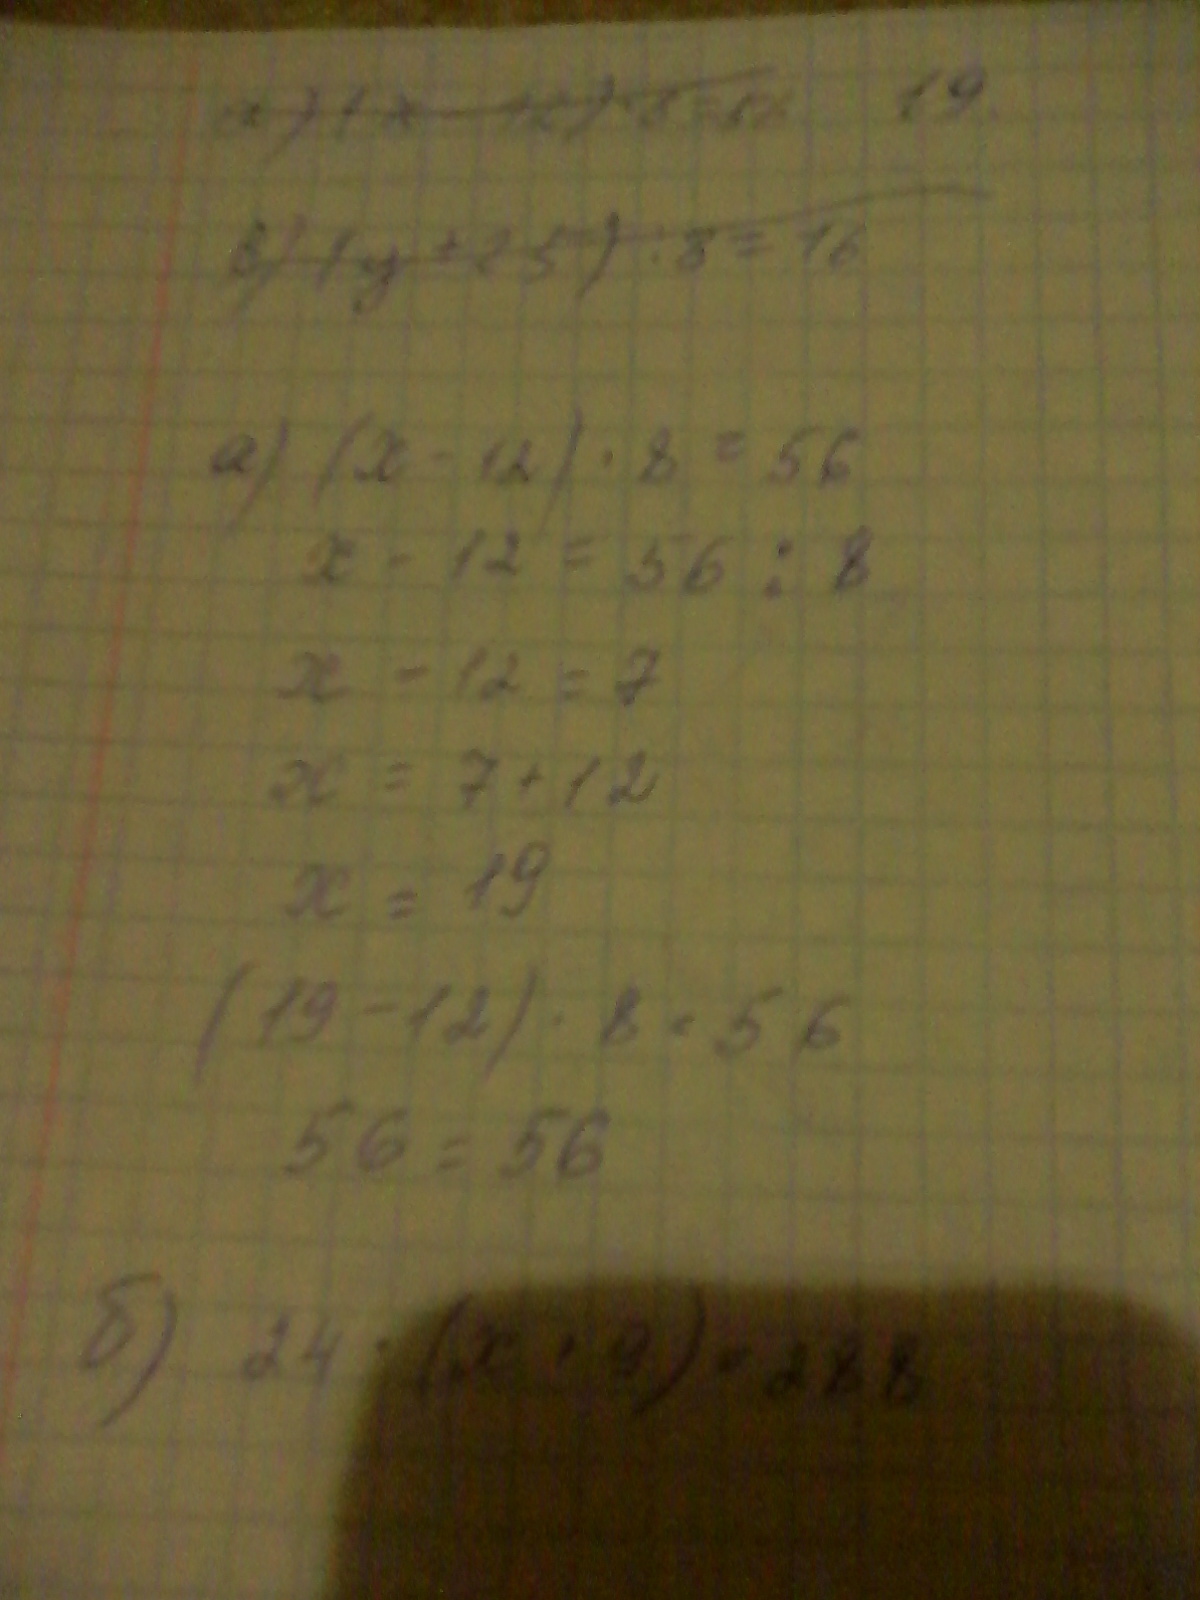 а) (x - 12) · 8 = 56 19
в) (y + 25) : 8 = 16
а) (x - 12) · 8 = 56
x - 12 = 56 : 8
x - 12 = 7
x = 7 + 12
x = 19
(19 - 12) · 8 = 56
56 = 56
б) 24 · (x + 9) = 288